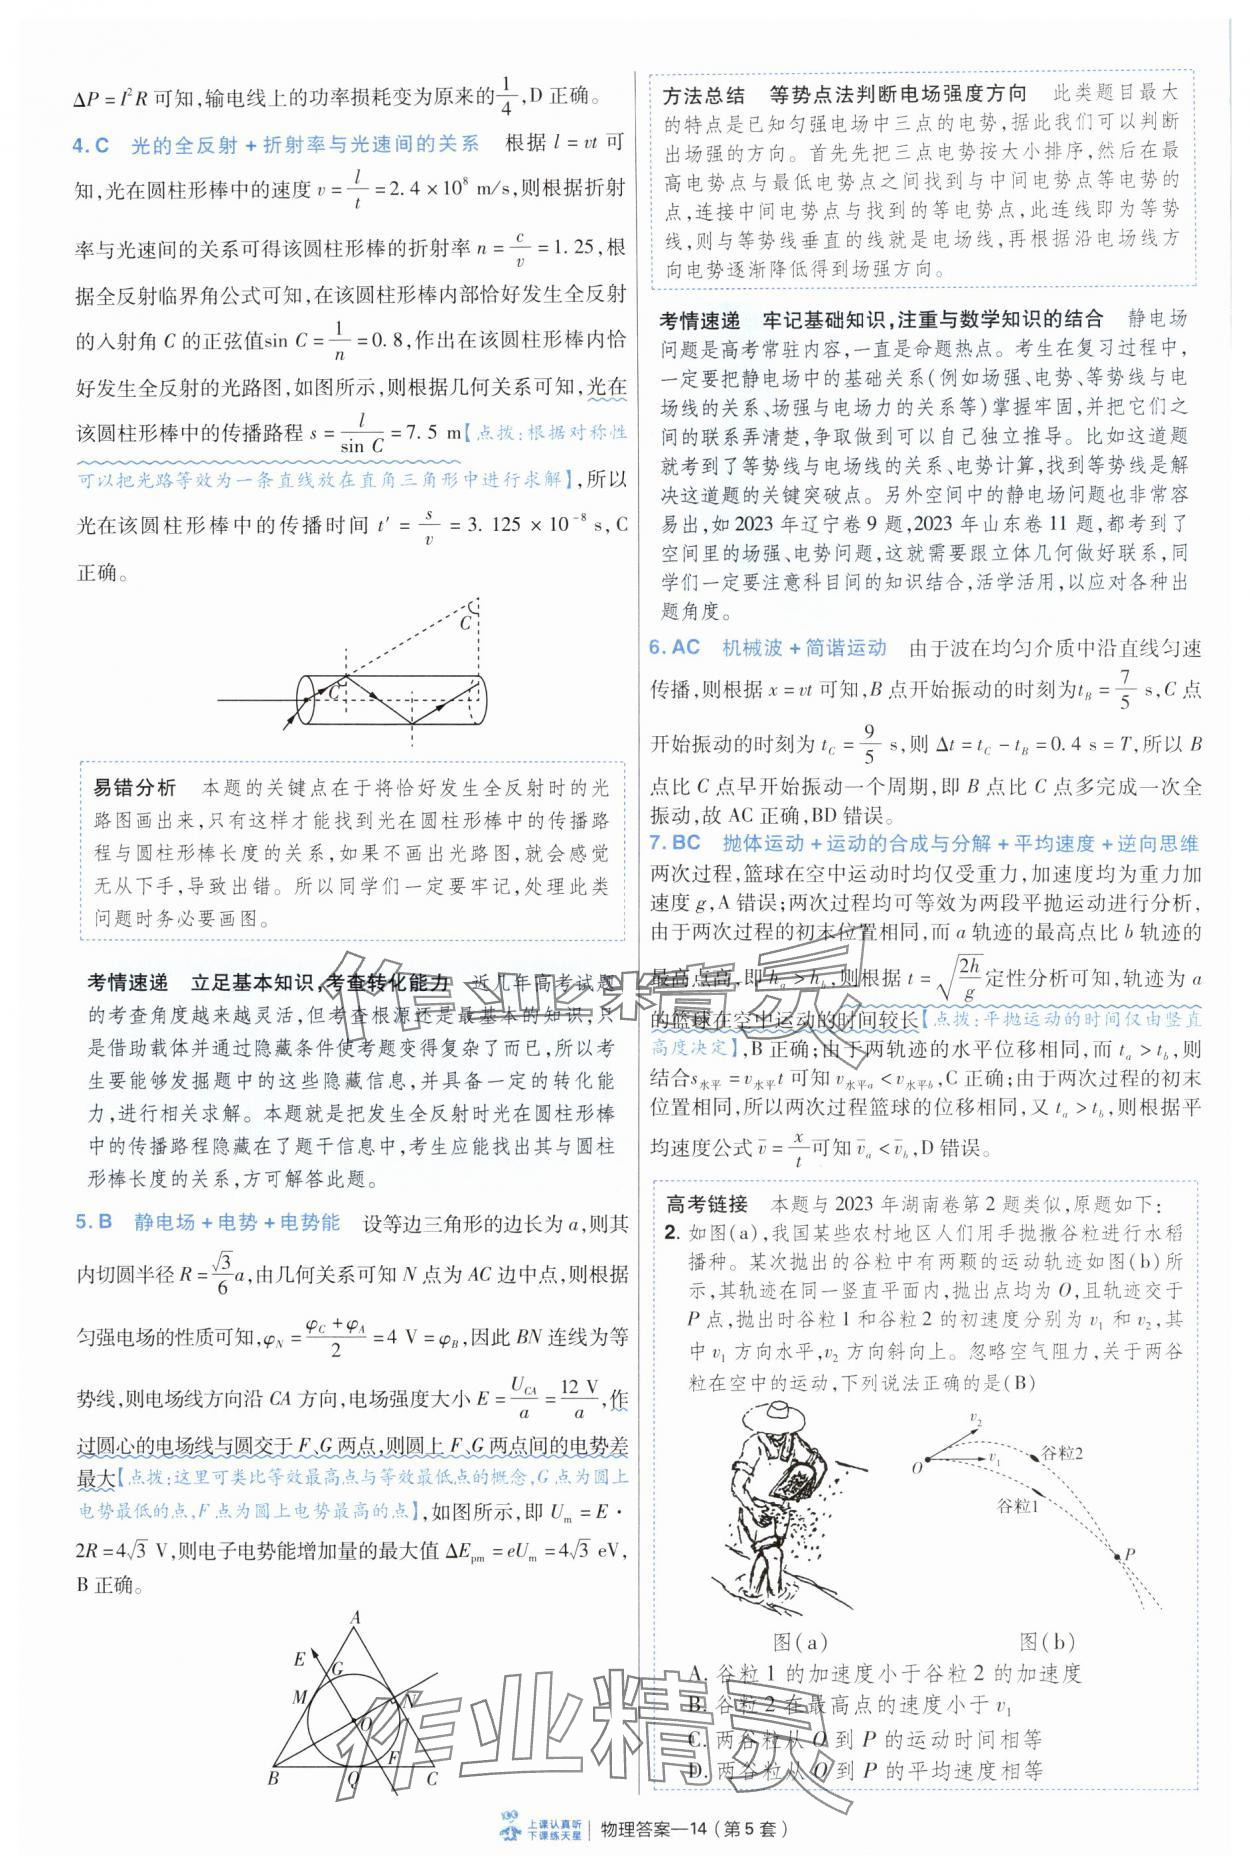 ΔP=I²R可知,输电线上的功率损耗变为原来的1/4,D正确。
4. C 光的全反射+折射率与光速间的关系 根据l=vt可
知,光在圆柱形棒中的速度v=l/t=2.4×10⁸ m/s,则根据折射
率与光速间的关系可得该圆柱形棒的折射率n=c/v=1.25,根
据全反射临界角公式可知,在该圆柱形棒内部恰好发生全反射
的入射角C的正弦值sin C=1/n=0.8,作出在该圆柱形棒内恰
好发生全反射的光路图,如图所示,则根据几何关系可知,光在
该圆柱形棒中的传播路程s=l/sin C=7.5 m【点拨:根据对称性
可以把光路等效为一条直线放在直角三角形中进行求解】,所以
光在该圆柱形棒中的传播时间t′=s/v=3.125×10⁻⁸ s,C
正确。
C
C
易错分析 本题的关键点在于将恰好发生全反射时的光
路图画出来,只有这样才能找到光在圆柱形棒中的传播路
程与圆柱形棒长度的关系,如果不画出光路图,就会感觉
无从下手,导致出错。所以同学们一定要牢记,处理此类
问题时务必要画图。
考情速递 立足基本知识,考查转化能力 近几年高考试题
的考查角度越来越灵活,但考查根源还是最基本的知识,只
是借助载体并通过隐藏条件使考题变得复杂了而已,所以考
生要能够发掘题中的这些隐藏信息,并具备一定的转化能
力,进行相关求解。本题就是把发生全反射时光在圆柱形棒
中的传播路程隐藏在了题干信息中,考生应能找出其与圆柱
形棒长度的关系,方可解答此题。
5. B 静电场+电势+电势能 设等边三角形的边长为a,则其
内切圆半径R=√3/6 a,由几何关系可知N点为AC边中点,则根据
匀强电场的性质可知,φ_N=(φ_C+φ_A)/2=4 V=φ_B,因此BN连线为等
势线,则电场线方向沿CA方向,电场强度大小E=U_CA/a=12 V/a,作
过圆心的电场线与圆交于F、G两点,则圆上F、G两点间的电势差
最大【点拨:这里可类比等效最高点与等效最低点的概念,G点为圆上
电势最低的点,F点为圆上电势最高的点】,如图所示,即U_m=E·
2R=4√3 V,则电子电势能增加量的最大值ΔE_pm=eU_m=4√3 eV,
B正确。
A
E
G
M
N
O
F
B
Q
C
方法总结 等势点法判断电场强度方向 此类题目最大
的特点是已知匀强电场中三点的电势,据此我们可以判断
出场强的方向。首先先把三点电势按大小排序,然后在最
高电势点与最低电势点之间找到与中间电势点等电势的
点,连接中间电势点与找到的等电势点,此连线即为等势
线,则与等势线垂直的线就是电场线,再根据沿电场线方
向电势逐渐降低得到场强方向。
考情速递 牢记基础知识,注重与数学知识的结合 静电场
问题是高考常驻内容,一直是命题热点。考生在复习过程中,
一定要把静电场中的基础关系(例如场强、电势、等势线与电
场线的关系、场强与电场力的关系等)掌握牢固,并把它们之
间的联系弄清楚,争取做到可以自己独立推导。比如这道题
就考到了等势线与电场线的关系、电势计算,找到等势线是解
决这道题的关键突破点。另外空间中的静电场问题也非常容
易出,如2023年辽宁卷9题,2023年山东卷11题,都考到了
空间里的场强、电势问题,这就需要跟立体几何做好联系,同
学们一定要注意科目间的知识结合,活学活用,以应对各种出
题角度。
6. AC 机械波+简谐运动 由于波在均匀介质中沿直线匀速
传播,则根据x=vt可知,B点开始振动的时刻为t_B=7/5 s,C点
开始振动的时刻为t_C=9/5 s,则Δt=t_C-t_B=0.4 s=T,所以B
点比C点早开始振动一个周期,即B点比C点多完成一次全
振动,故AC正确,BD错误。
7. BC 抛体运动+运动的合成与分解+平均速度+逆向思维
两次过程,篮球在空中运动时均仅受重力,加速度均为重力加
速度g,A错误;两次过程均可等效为两段平抛运动进行分析,
由于两次过程的初末位置相同,而a轨迹的最高点比b轨迹的
最高点高,即h_a>h_b,则根据t=√(2h/g)定性分析可知,轨迹为a
的篮球在空中运动的时间较长【点拨:平抛运动的时间仅由竖直
高度决定】,B正确;由于两轨迹的水平位移相同,而t_a>t_b,则
结合s_水平=v_水平t可知v_水平a<v_水平b,C正确;由于两次过程的初末
位置相同,所以两次过程篮球的位移相同,又t_a>t_b,则根据平
均速度公式v̄=x/t可知v̄_a<v̄_b,D错误。
高考链接 本题与2023年湖南卷第2题类似,原题如下:
2. 如图(a),我国某些农村地区人们用手抛撒谷粒进行水稻
播种。某次抛出的谷粒中有两颗的运动轨迹如图(b)所
示,其轨迹在同一竖直平面内,抛出点均为O,且轨迹交于
P点,抛出时谷粒1和谷粒2的初速度分别为v₁和v₂,其
中v₁方向水平,v₂方向斜向上。忽略空气阻力,关于两谷
粒在空中的运动,下列说法正确的是(B)
v₂
O
v₁
谷粒2
谷粒1
P
图(a) 图(b)
A. 谷粒1的加速度小于谷粒2的加速度
B. 谷粒2在最高点的速度小于v₁
C. 两谷粒从O到P的运动时间相等
D. 两谷粒从O到P的平均速度相等
作业精灵
作业精灵
上课认真听
下课练天星
物理答案—14(第5套)